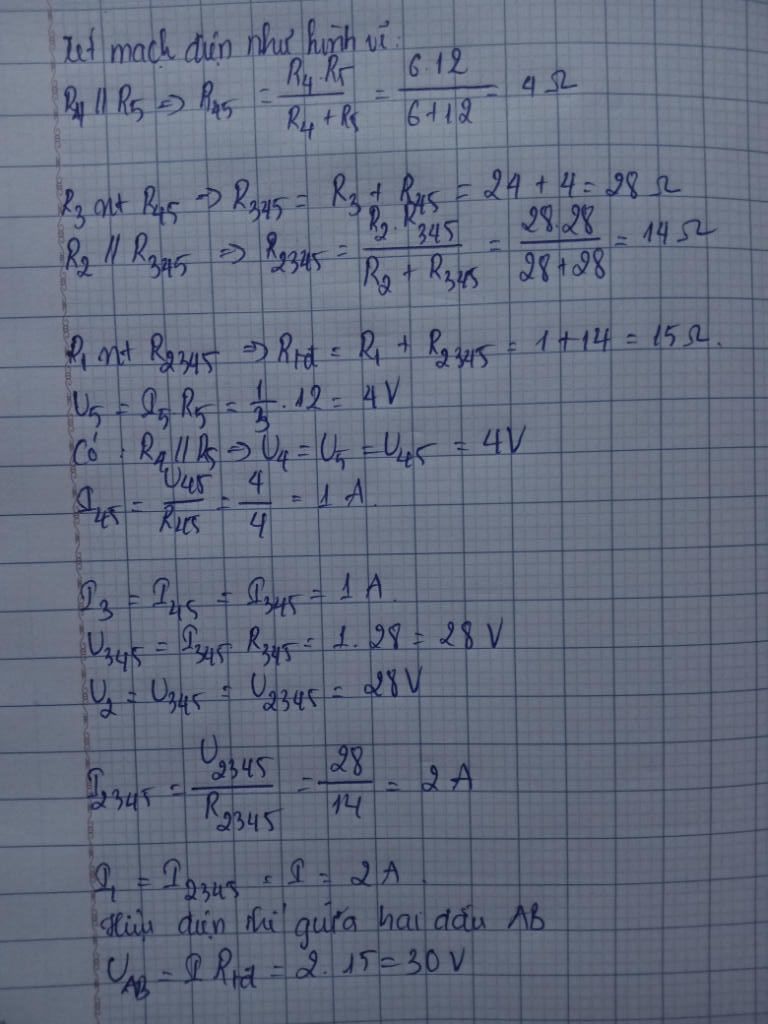 Xét mạch điện như hình vẽ:
R4 // R5 => R45 = R4.R5/(R4+R5) = 6.12/(6+12) = 4 Ω
R3 nt R45 => R345 = R3 + R45 = 24 + 4 = 28 Ω
R2 // R345 => R2345 = R2.R345/(R2 + R345) = 28.28/(28+28) = 14 Ω
R1 nt R2345 => Rtđ = R1 + R2345 = 1 + 14 = 15 Ω.
U5 = I5 R5 = 1/3 . 12 = 4V
Có : R4 // R5 => U4 = U5 = U45 = 4V
I45 = U45/R45 = 4/4 = 1 A.
I3 = I45 = I345 = 1 A.
U345 = I345 R345 = 1. 28 = 28 V
U2 = U345 = U2345 = 28V
I2345 = U2345/R2345 = 28/14 = 2 A
I1 = I2345 = I = 2 A.
Hiệu điện thế giữa hai đầu AB
UAB = I Rtđ = 2. 15 = 30 V